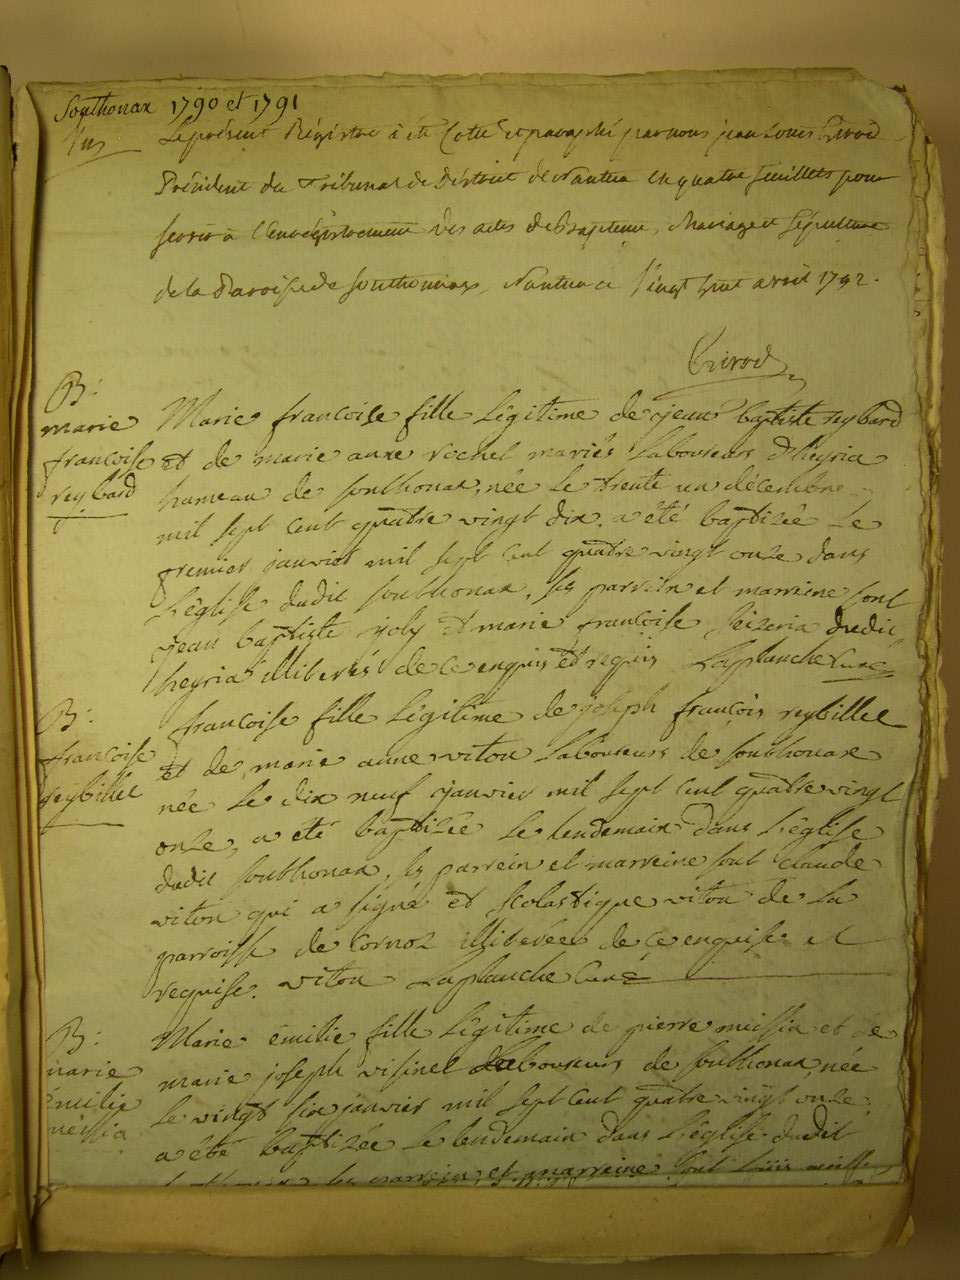 Southonax 1790 et 1791
Le présent Régistre a été Cotté et paraphé par nous jean Louis Girod
Président du Tribunal de District de Nantua en quatre feuillets pour
servir à l'enrégistrement des actes de Bapteme, Mariage et Sépulture
de la Paroisse de Southonnax, Nantua ce vingt huit avril 1792.
Girod
B:
marie
francoise
reybard
Marie francoise fille Légitime de jean baptiste reybard
et de marie anne rochet mariés Laboureurs d'heyria
hameau de southonax, née Le trente un décembre
mil sept cent quatre vingt dix. a été baptizée Le
premier janvier mil sept cent quatre vingt onze dans
L'église dudit southonax, ses parrein et marreine sont
jean baptiste joly et marie francoise seizeria dudit
heyria illiterés de ce enquis et requis Laplanche Curé
B:
francoise
reybillet
francoise fille Légitime de joseph françois reybillet
et de marie anne viton Laboureurs de southonax
née Le dix neuf janvier mil sept cent quatre vingt
onze, a été baptizée Le lendemain dans L'église
dudit southonax, ses parrein et marreine sont Claude
viton qui a signé et scolastique viton de La
parroisse de Cornoz illiterée de ce enquise et
requise. viton Laplanche Curé
B:
marie
émilie
messia
Marie émilie fille Légitime de pierre messia et de
marie joseph visinet Laboureurs de southonax, née
Le vingt six janvier mil sept cent quatre vingt onze.
a été baptizée Le lendemain dans L'église dudit
southonax ses parrein et marreine sont